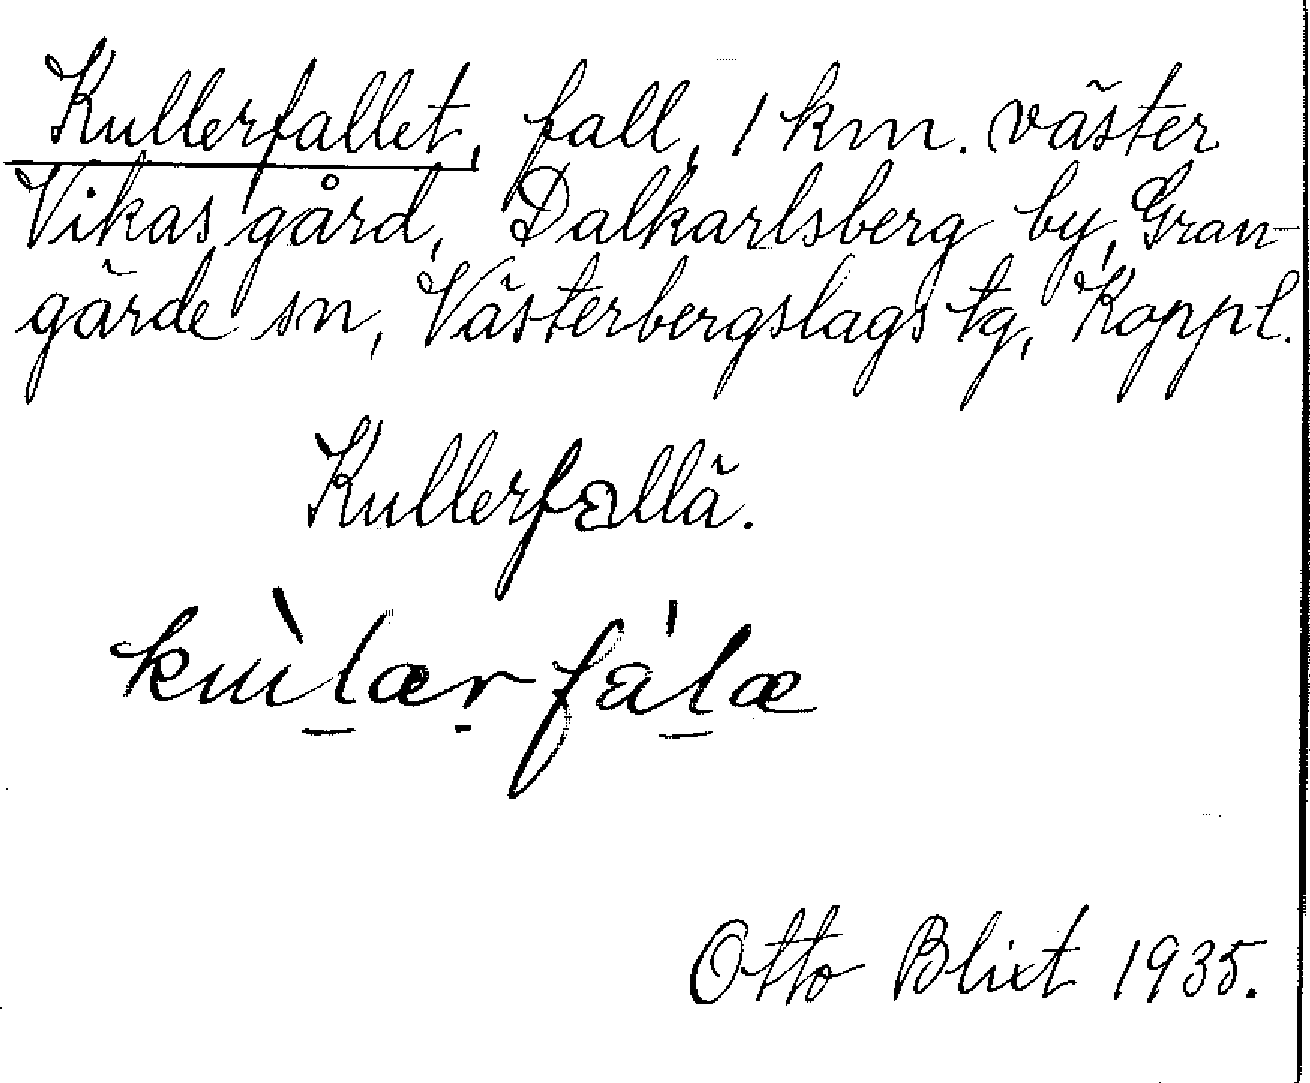 Kullerfallet, fall, 1 km. väster
Vikas gård, Dalkarlsberg by, Gran-
gärde sn, Västerbergslags tg, Koppl.
Kullerfallä.
kùl̠ær̠fál̠æ
Otto Blixt 1935.